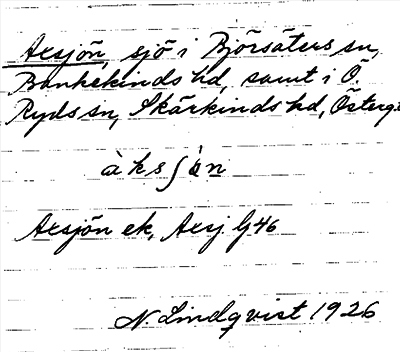 Axsjön, sjö i Björsäters sn,
Bankekinds hd, samt i Ö.
Ryds sn, Skärkinds hd, Östergö
àksʃön
Axsjön ek, Axsj G46
N Lindqvist 1926